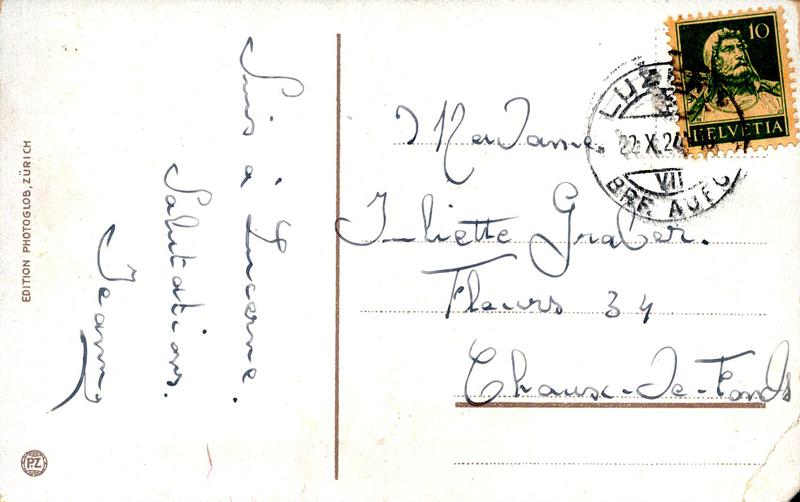 EDITION PHOTOGLOB, ZÜRICH
PZ
Suis à Lucerne.
Salutations.
Jeanny
10
HELVETIA
22.X.24
VII
BRF. AUFG
Madame
Juliette Graber.
Fleurs 34
Chaux-de-Fonds